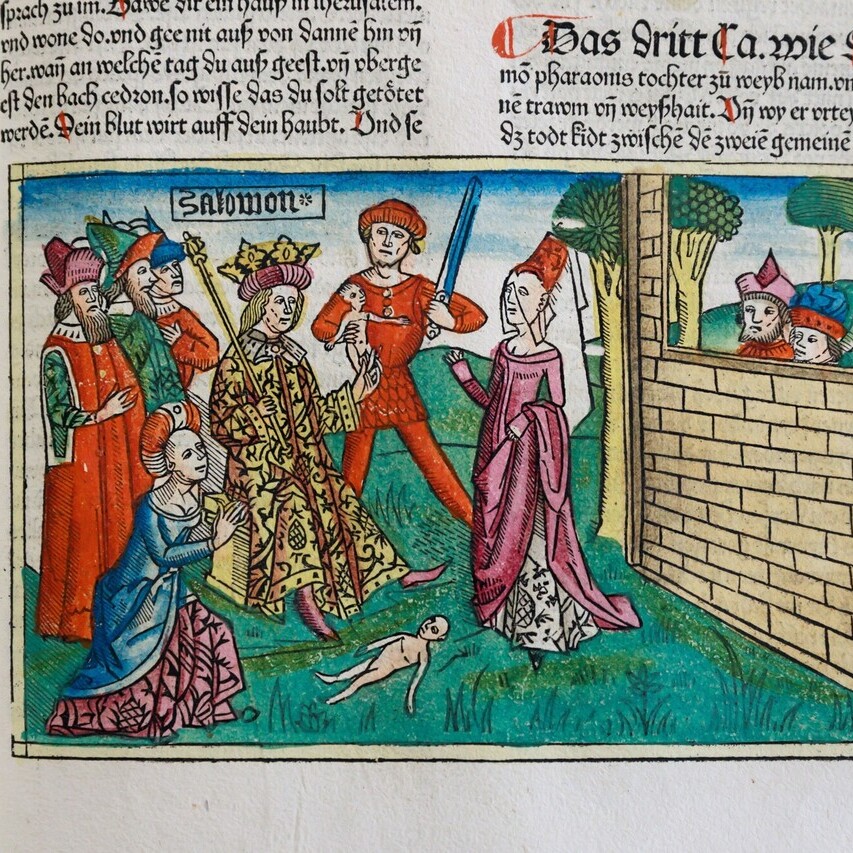 sprach zu im. Bawe dir ein hauß in iherusalem.
vnd wone do.vnd gee nit auß von dannē hin vn̄
her.wañ an welchē tag du auß geest.vn̄ vberge
est den bach cedron.so wisse das du solt getötet
werdē. Dein blut wirt auff dein haubt. Vnd se
Das dritt Ca. wie S
mō pharaonis tochter zū weyb nam.vn
nē trawm vn̄ weyßhait. Vn̄ wy er vrtey
dz todt kidt zwischē dē zweiē gemeinē
Salomon